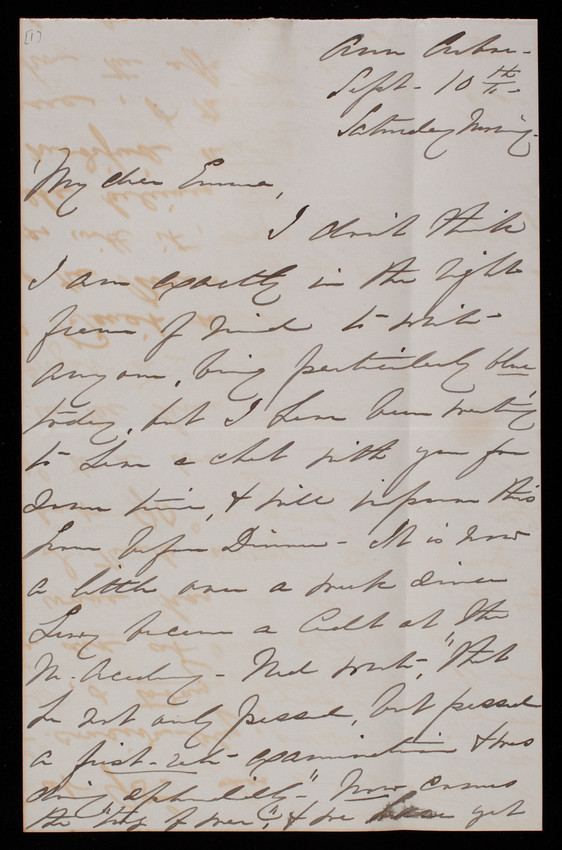 [1]
Ann Arbor-
Sept- 10th-
Saturday Morning-
My dear Emma,
I don't think
I am exactly in the right
frame of mind to write
anyone, being particularly blue
today, but I have been wanting
to have a chat with you for
some time, & will improve this
hour before Dinner- It is now
a little over a week since
Leroy became a Cadet at the
M. Academy- Ned wrote, "that
he not only passed, but passed
a first-rate examination & was
doing splendidly"- Now comes
the "tug of war", & we have yet